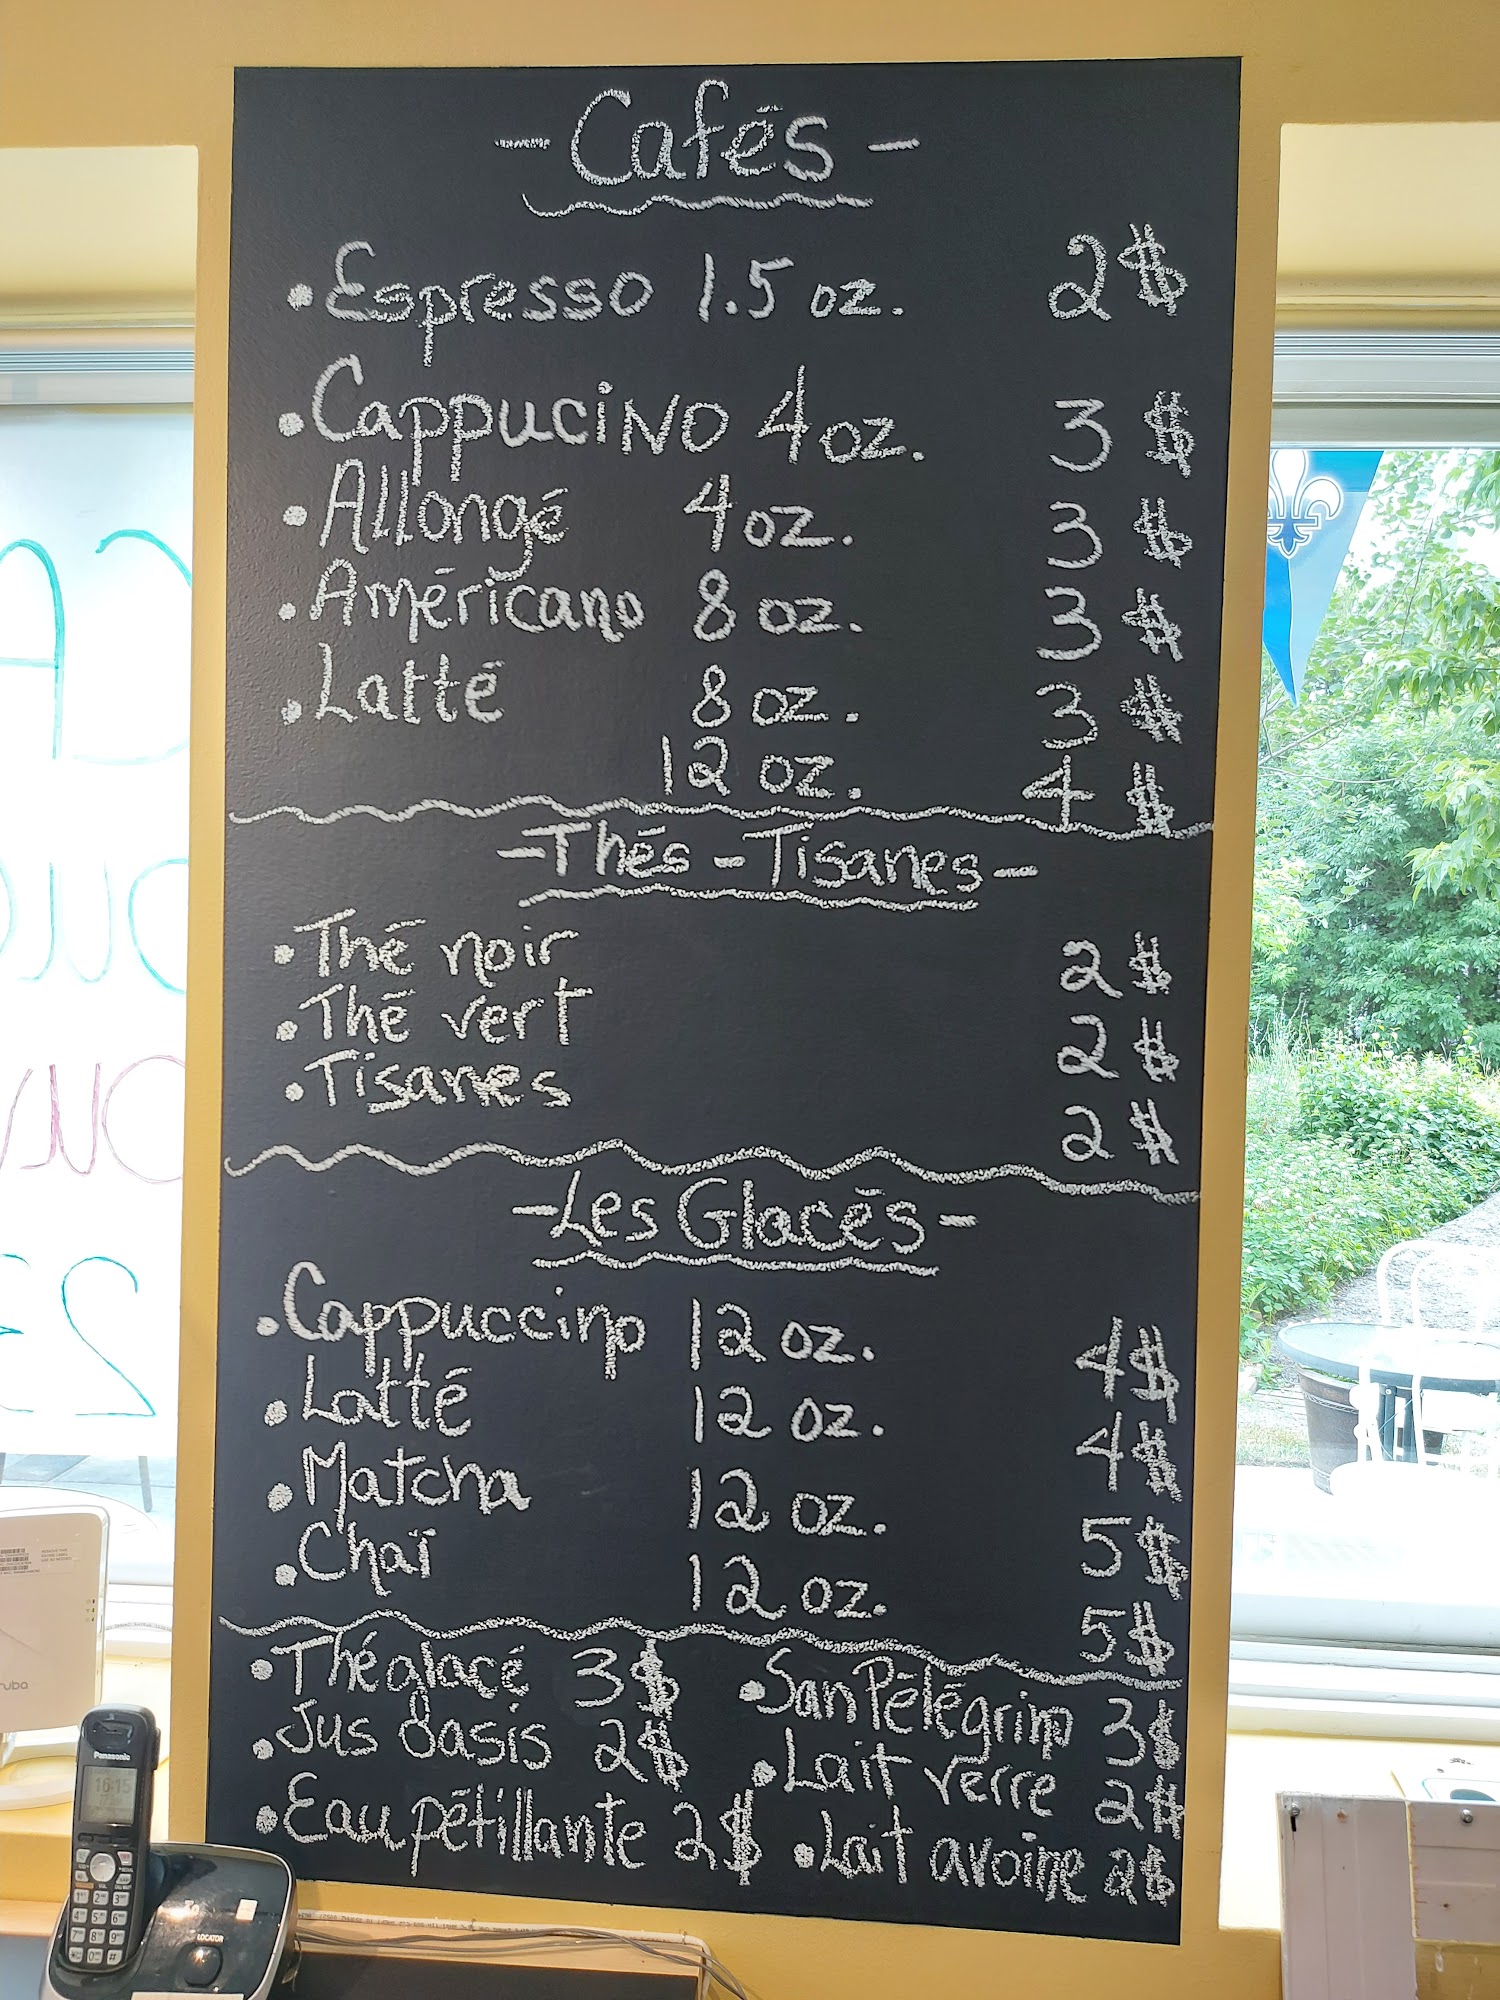 - Cafés -
• Espresso 1.5 oz. 2$
• Cappucino 4 oz. 3$
• Allongé 4 oz. 3$
• Américano 8 oz. 3$
• Latté 8 oz. 3$
12 oz. 4$
- Thés - Tisanes -
• Thé noir 2$
• Thé vert 2$
• Tisanes 2$
- Les Glacés -
• Cappuccino 12 oz. 4$
• Latté 12 oz. 4$
• Matcha 12 oz. 5$
• Chaï 12 oz. 5$
• Thé glacé 3$
• Jus Oasis 2$
• Eau pétillante 2$
• San Pélégrino 3$
• Lait verre 2$
• Lait avoine 2$
Panasonic
16:15
LOCATOR